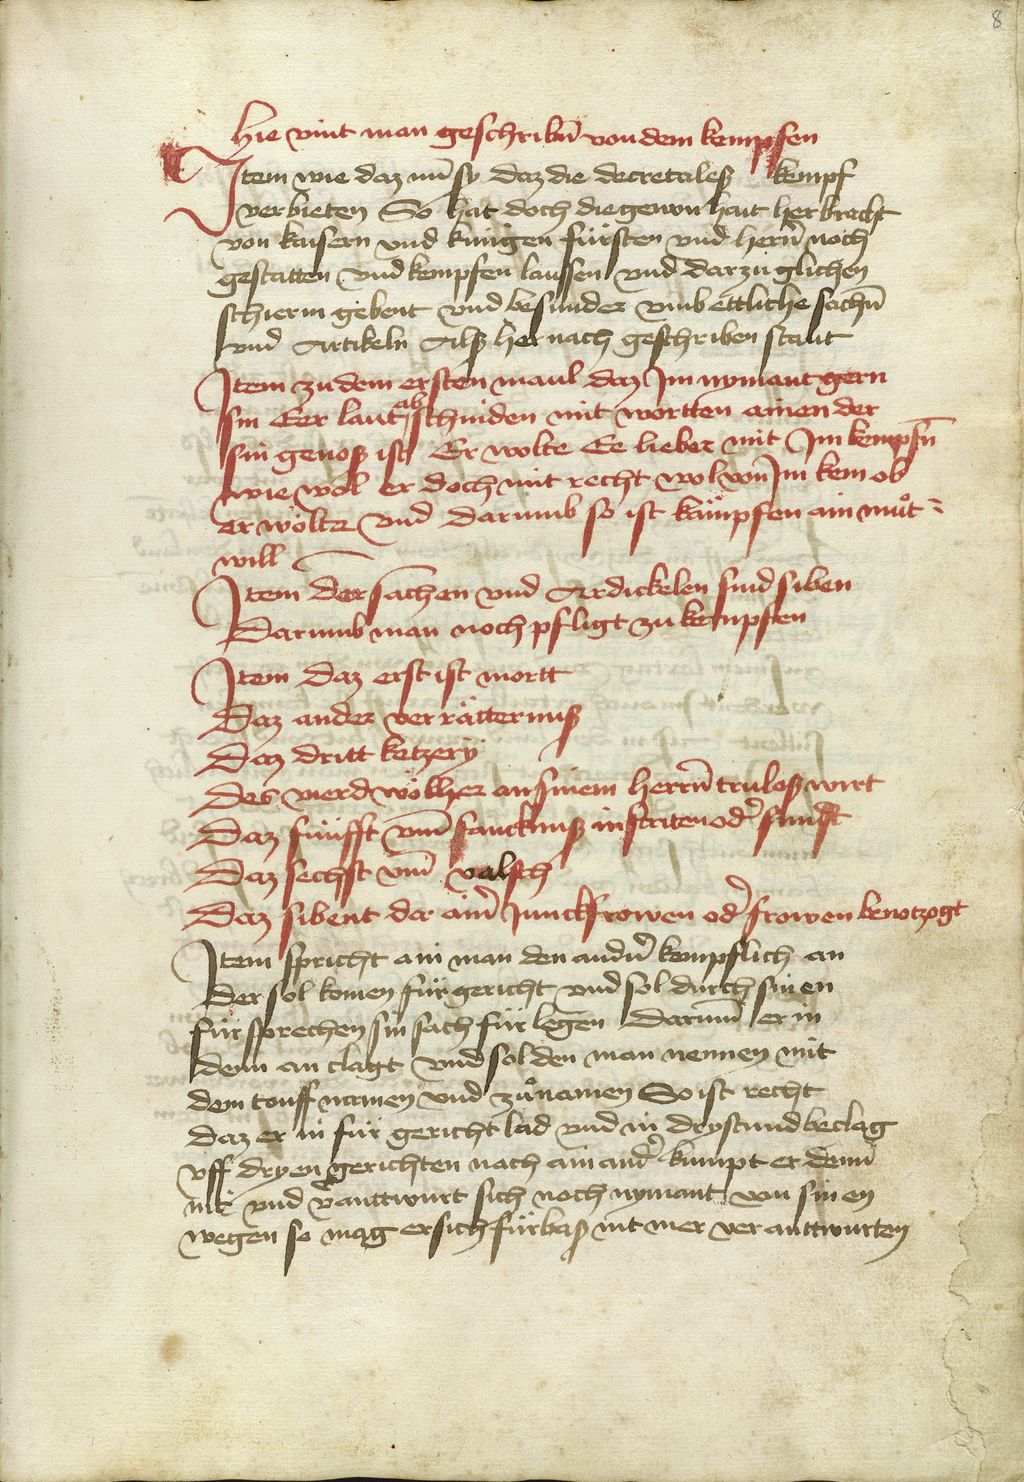 8
hie vint man geschribñ von dem kempfen
Item wie daz nũ sy daz die decretaleß kempf
verbieten So hat doch die gewon hait her bracht
von kaisern vnd künigen fürsten vnd herñ noch
gestatten vnd kempfen laussen vnd darzu glichen
schierm gebent vnd besunder vmb ettliche sachñ
vnd Artikeln Alß her nach geschriben staut
Item zu dem ersten maul daz Im nymant gern
sin Eer laut ab schniden mit wortten ainen der
sin genoß ist Er wolte Ee lieber mit Im kempfñ
wie wol er doch mit recht wol von Im kem ob
er wölte vnd darumb so ist kämpfen ain můt=
will
Item der sachen vnd Ardickelen sind siben
Darumb man noch pfligt zu kempfen
Item daz erst ist mortt
Daz ander verrätterniß
Daz dritt ketzerÿ
Des vierd wölher an sinem herrñ truloß wirt
Daz fünfft vm̃ fancknuß in striten oder sunst
Daz sechst vm̃ valsch
Daz sibent da ainr̃ Junckfrowen oder frowen benotzogt
Item spricht ain man den andrñ kempflich an
der sol komen für gericht vnd sol durch sin en
fürsprechen sin sach für legen Darum̃ er in
denn an clagt vnd sol den man nennen mit
dem touff namen vnd zůnamen So ist recht
daz er in für gericht lad vnd in drystund beclag
vff dryen gerichten nach ain andr̃ kumpt er denn̄
nit vnd v̾anttwurt sich noch nymant von sin en
wegen so mag er sich fürbaß nit mer ver anttwurten